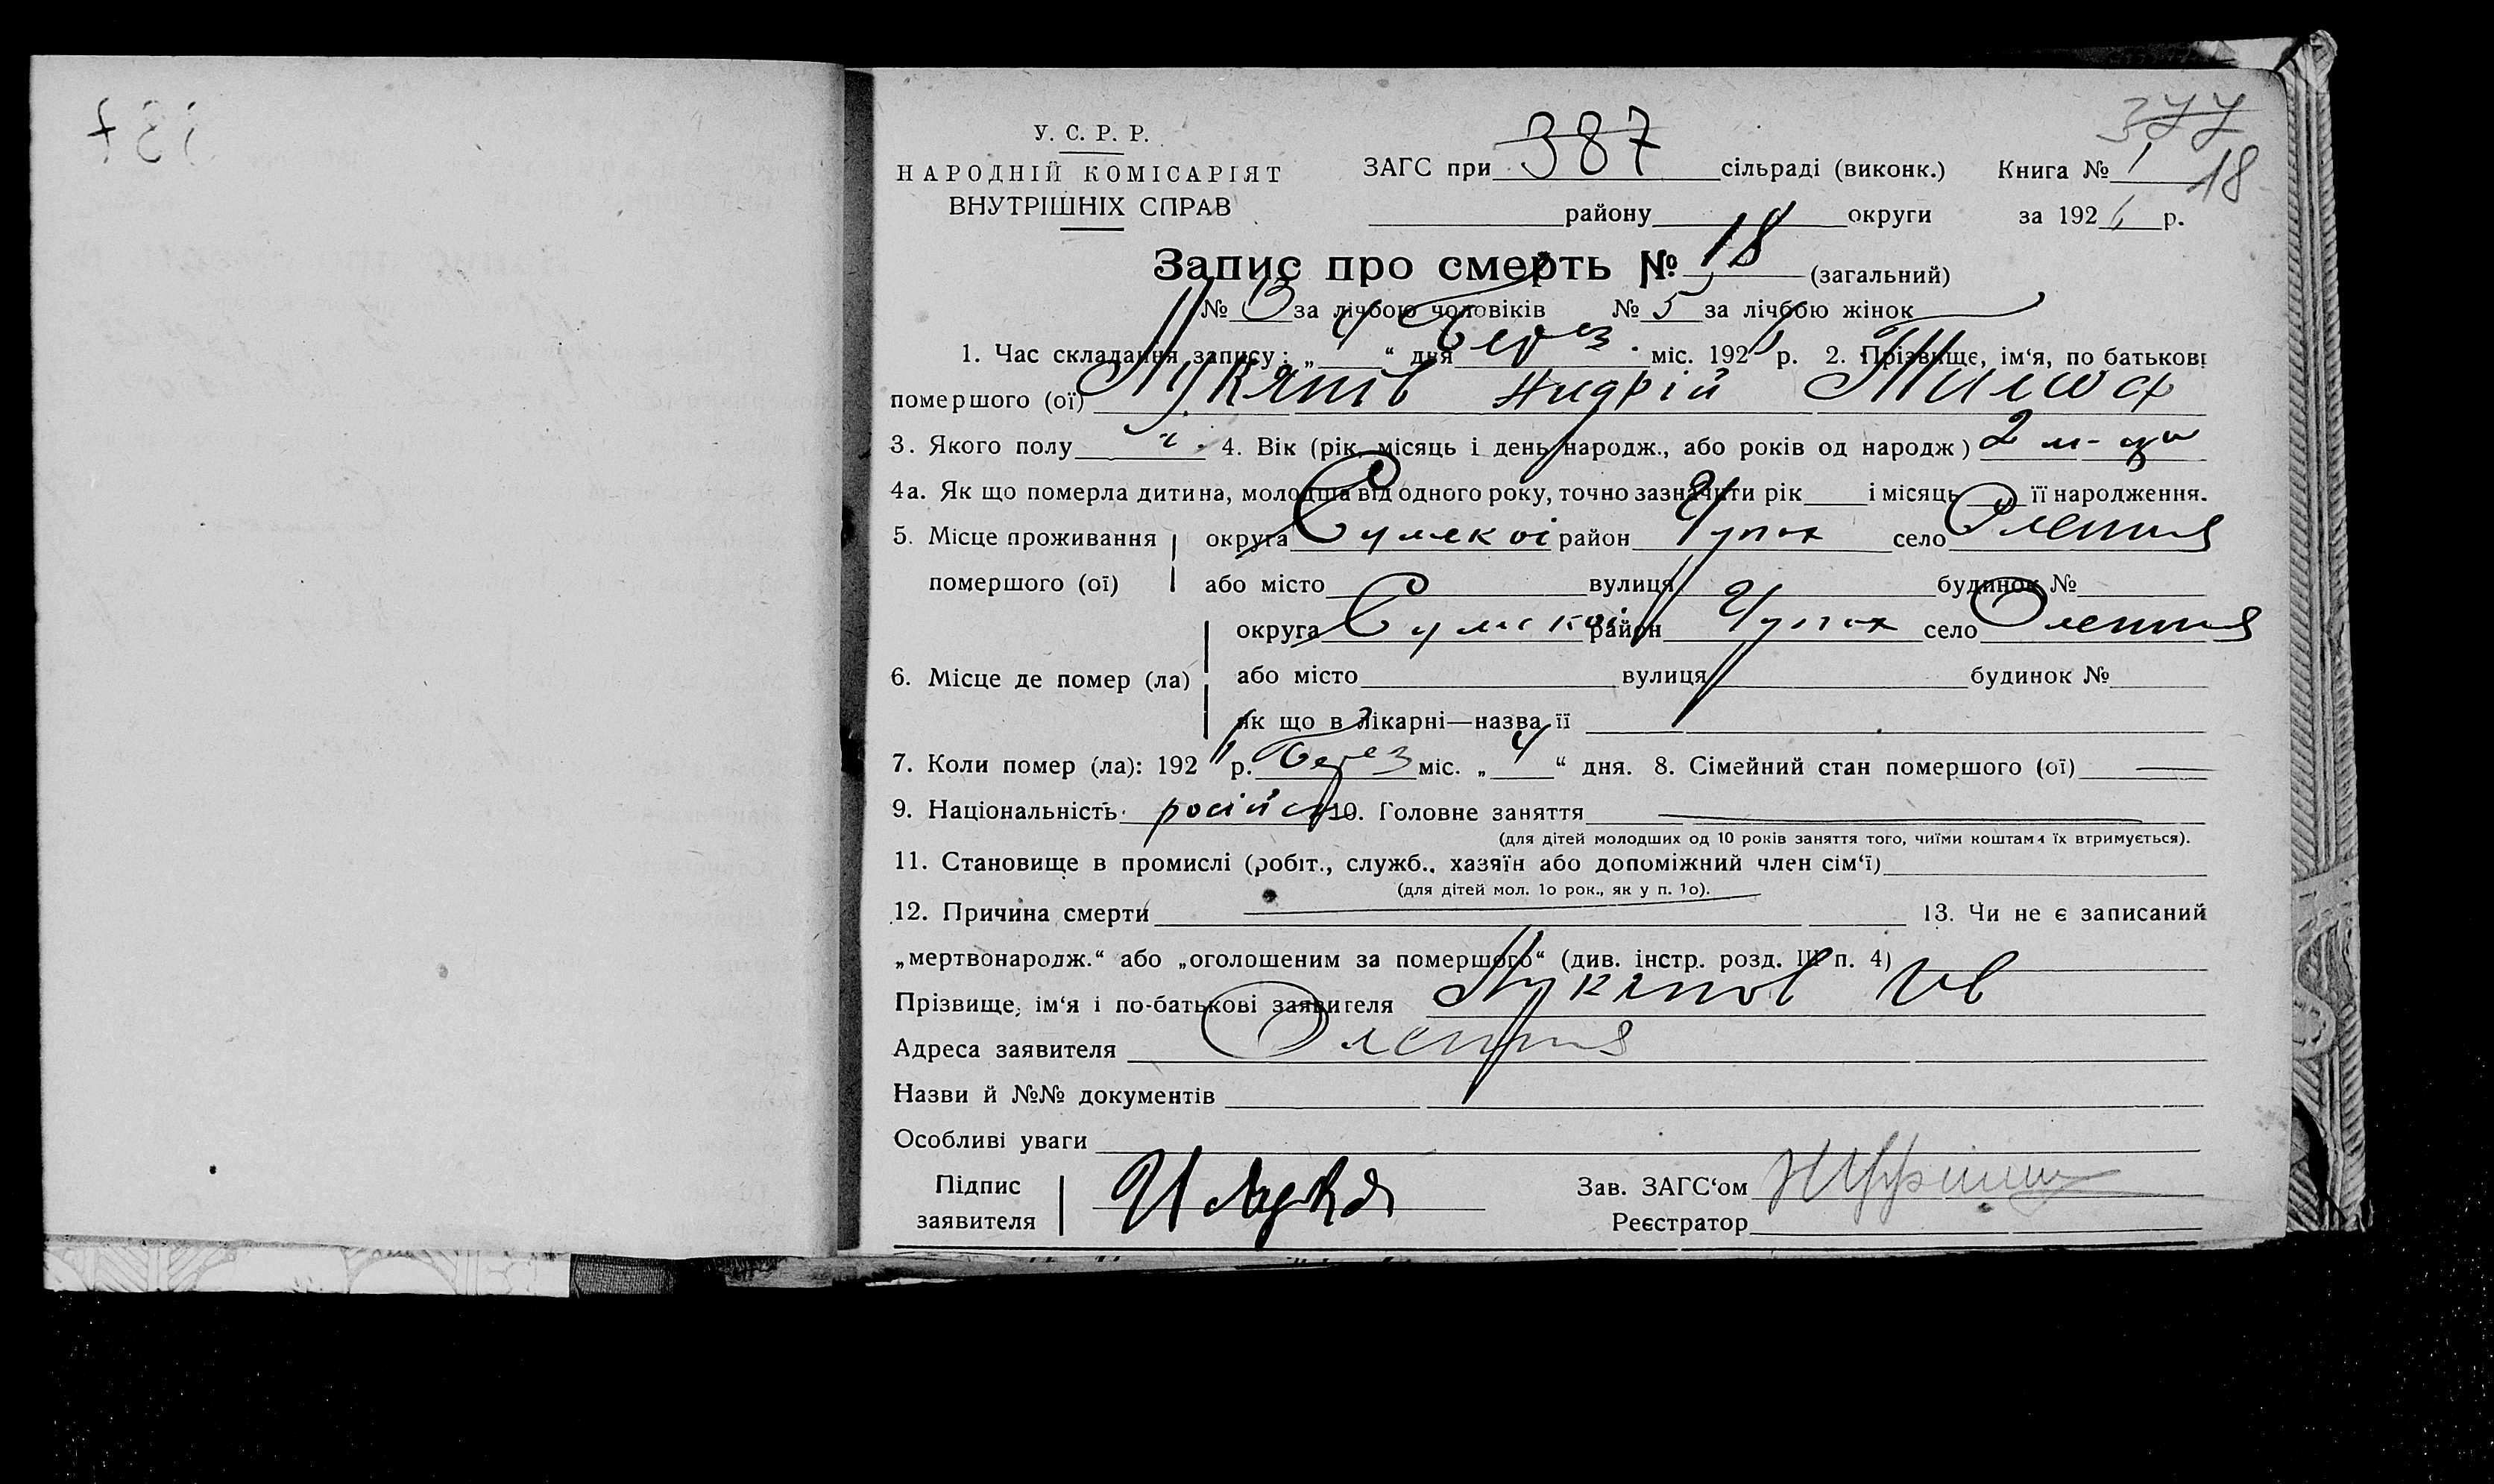 377
У. С. Р. Р.
НАРОДНІЙ КОМІСАРІЯТ
ВНУТРІШНІХ СПРАВ
ЗАГС при 387 сільраді (виконк.) Книга № 1
18
району округи за 1926 р.
Запис про смерть № 18 (загальний)
№ 13 за лічбою чоловіків № 5 за лічбою жінок
1. Час складання запису: „4“ дня Берез. міс. 192 р. 2. Прізвище, ім‘я, по батькові
помершого (ої) Лукянів Андрій Тимоф
3. Якого полу ч. 4. Вік (рік, місяць і день народж., або років од народж) 2 м-ця
4а. Як що померла дитина, молодша від одного року, точно зазначити рік і місяць її народження.
5. Місце проживання округа Сумскої район Чупах село Олешня
помершого (ої) або місто вулиця будинок №
округа Сумскої район Чупах село Олешня
6. Місце де помер (ла) або місто вулиця будинок №
як що в лікарні—назва її
7. Коли помер (ла): 192 р. Берез міс. „4“ дня. 8. Сімейний стан помершого (ої) —
9. Національність російс 10. Головне заняття —
(для дітей молодших од 10 років заняття того, чиїми коштами їх втримується).
11. Становище в промислі (робіт., служб., хазяїн або допоміжний член сім‘ї)
(для дітей мол. 1о рок., як у п. 1о).
12. Причина смерти — 13. Чи не є записаний
„мертвонародж.“ або „оголошеним за помершого“ (див. інстр. розд. III п. 4)
Прізвище, ім‘я і по-батькові заявителя Лукянов Ив
Адреса заявителя Олешня
Назви й №№ документів
Особливі уваги
Підпис
заявителя
Зав. ЗАГС‘ом
Реєстратор